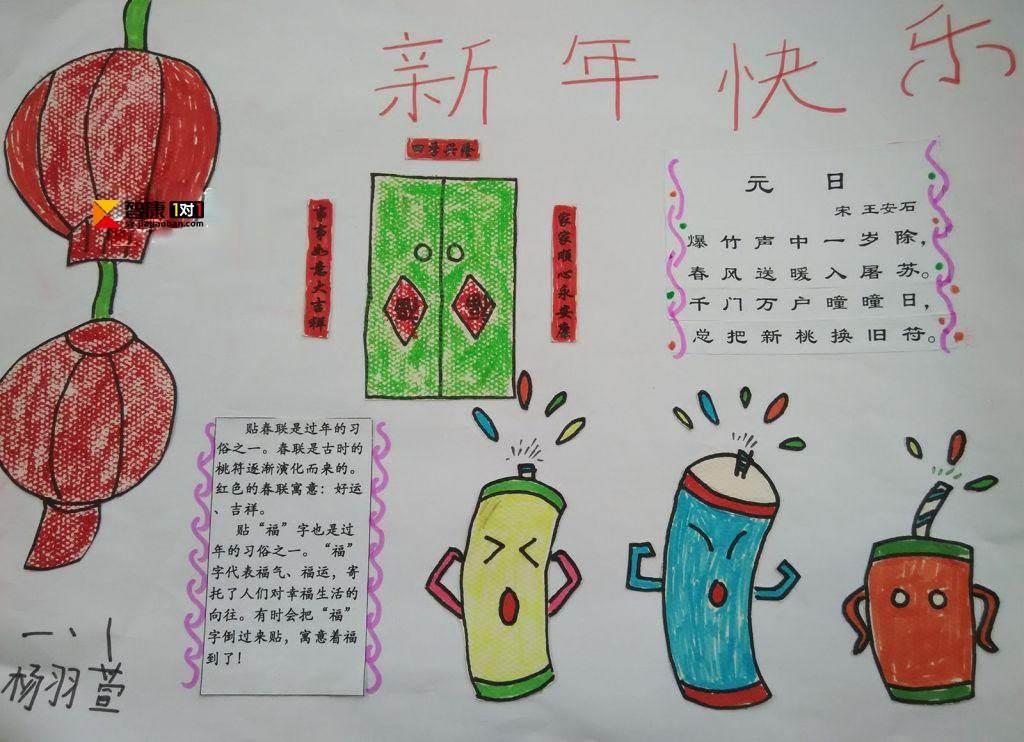 新年快乐
智康1对1
jiajiaoban.com
四季兴隆
事事如意大吉祥
家家顺心永安康
福
福
元 日
宋 王安石
爆竹声中一岁除，
春风送暖入屠苏。
千门万户曈曈日，
总把新桃换旧符。
贴春联是过年的习
俗之一。春联是古时的
桃符逐渐演化而来的。
红色的春联寓意：好运
、吉祥。
贴“福”字也是过
年的习俗之一。“福”
字代表福气、福运，寄
托了人们对幸福生活的
向往。有时会把“福”
字倒过来贴，寓意着福
到了！
一、1
杨羽萱